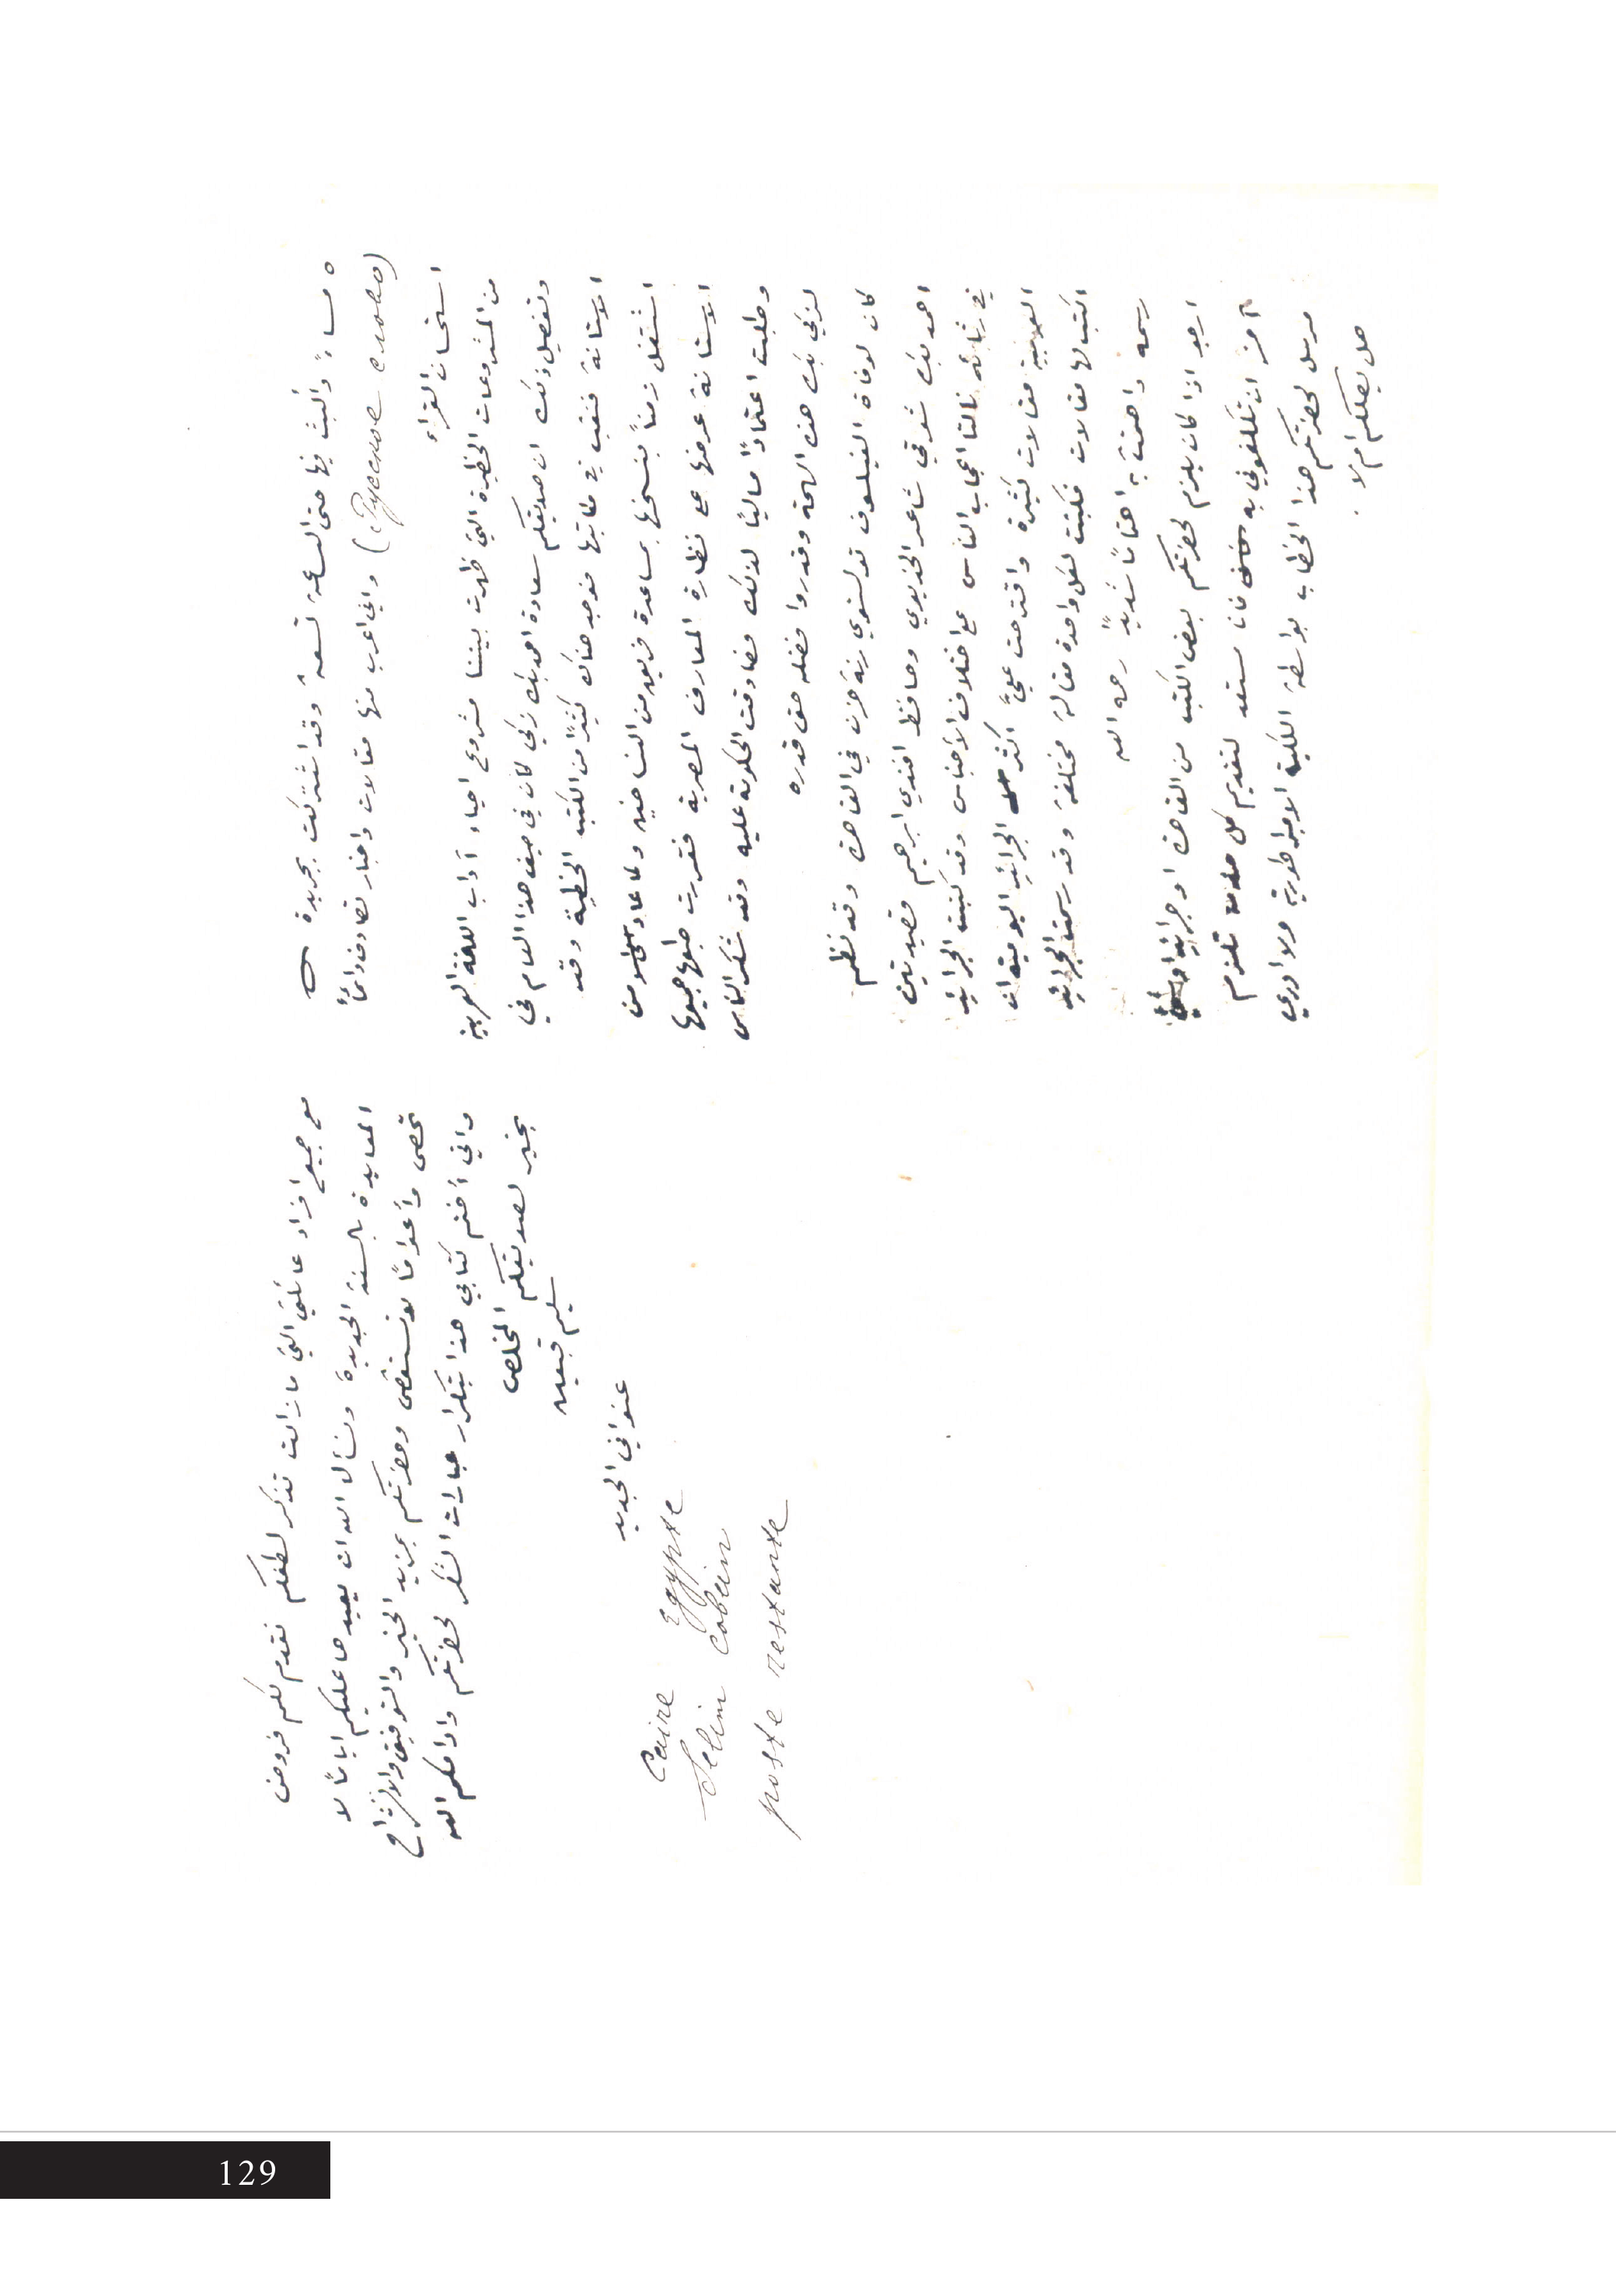 ٥ مساءً وألبث فيها حتى الساعة تسعة وقد اشتركت بجريدة
(Русское слово) واني اعرب منها مقالات واخبار تصادف دائماً
استحسان القراء
من المشروعات الخطيرة التي ظهرت بيننا مشروع احياء آداب اللغة العربية
وتفصيل ذلك ان صديقكم سعادة احمد بك زكي كان في صيف هذا العام في
الاستانة فنقب في مكاتبها فوجد هناك كثيرًا من الكتب الخطية وقد
اشتغل زمناً بنسخها بمساعدة فريق من الناسخين ولما عاد من
الاستانة عرضها على نظارة المعارف المصرية فقررت طبعها جميعها
وطلبت اعتمادًا ماليًا لذلك فصادقت الحكومة عليه وقد شكر الناس
لزكي بك هذه الهمة وقدروا فضله حق قدره
كان لوفاة الفيلسوف تولستوي رنة حزن في القاهرة وقد نظم
احمد بك شوقي شاعر الخديوي وحافظ افندي ابرهيم قصيدتين
في رثائه نالتا اعجاب الناس على اختلاف الأجناس وقد كتبت الجرائد
العربية مقالات كثيرة واقترحت عليَّ اكثر الجرائد اليومية ان
اكتب لها مقالات فكتبت لكل واحدة مقالة مختلفة وقد رسمت الجرائد
رسمه واهتمت به اهتمامًا شديدًا رحمه الله
ارجو اذا كان يلزم لحضرتكم بعض الكتب من القاهرة او جرائد او شيء
آخر ان تكلفوني به فانا مستعد لتقديم كل ما يلزم
مرسل لحضرتكم هذا الخطاب بواسطة الكلية الامبراطورية ولا ادري
هل يصلكم ام لا.
مع جميع افراد عائلتي التي ما زالت تذكر لطفكم نقدم لكم فروض
المعايدة بالسنة الجديدة ونسأل الله ان يعيدها عليكم ايامًا لا
تحصى وأعوامًا لا تستقصى وحضرتكم بمزيد الخير والتوفيق والانشراح
واني أختم كتابي هذا بتكرار عبارات الشكر لحضرتكم وادامكم الله
بخير لصديقكم المخلص
سليم قبعين
عنواني الجديد
Caire Egypte
Selim Cobein
poste restante
129